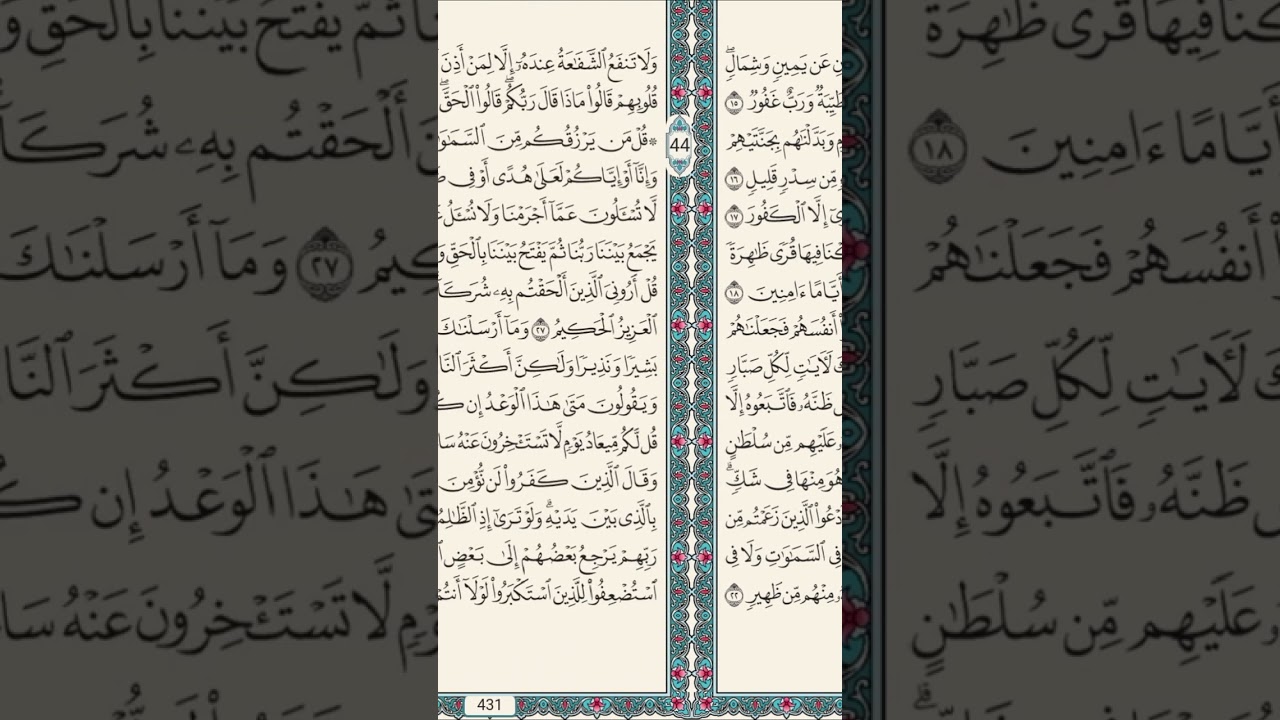 عَن يَمِينٖ وَشِمَالٖۖ
وَرَبٌّ غَفُورٞ ١٥
وَبَدَّلۡنَٰهُم بِجَنَّتَيۡهِمۡ
مِّن سِدۡرٖ قَلِيلٖ ١٦
إِلَّا ٱلۡكَفُورَ ١٧
فِيهَا قُرٗى ظَٰهِرَةٗ
أَيَّامًا ءَامِنِينَ ١٨
أَنفُسَهُمۡ فَجَعَلۡنَٰهُمۡ
لَأٓيَٰتٖ لِّكُلِّ صَبَّارٖ
ظَنَّهُۥ فَٱتَّبَعُوهُ إِلَّا
عَلَيۡهِم مِّن سُلۡطَٰنٍ
هُوَ مِنۡهَا فِي شَكّٖۗ
ٱلَّذِينَ زَعَمۡتُم مِّن
فِي ٱلسَّمَٰوَٰتِ وَلَا فِي
مِنۡهُم مِّن ظَهِيرٖ ٢٢
44
وَلَا تَنفَعُ ٱلشَّفَٰعَةُ عِندَهُۥٓ إِلَّا لِمَنۡ أَذِنَ
قُلُوبِهِمۡ قَالُواْ مَاذَا قَالَ رَبُّكُمۡۖ قَالُواْ ٱلۡحَقَّۖ
۞قُلۡ مَن يَرۡزُقُكُم مِّنَ ٱلسَّمَٰوَ
وَإِنَّآ أَوۡ إِيَّاكُمۡ لَعَلَىٰ هُدًى أَوۡ فِي
لَّا تُسۡـَٔلُونَ عَمَّآ أَجۡرَمۡنَا وَلَا نُسۡـَٔلُ
يَجۡمَعُ بَيۡنَنَا رَبُّنَا ثُمَّ يَفۡتَحُ بَيۡنَنَا بِٱلۡحَقِّ وَ
قُلۡ أَرُونِيَ ٱلَّذِينَ أَلۡحَقۡتُم بِهِۦ شُرَكَآ
ٱلۡعَزِيزُ ٱلۡحَكِيمُ ٢٧ وَمَآ أَرۡسَلۡنَٰكَ
بَشِيرٗا وَنَذِيرٗا وَلَٰكِنَّ أَكۡثَرَ ٱلنَّا
وَيَقُولُونَ مَتَىٰ هَٰذَا ٱلۡوَعۡدُ إِن كُ
قُل لَّكُم مِّيعَادُ يَوۡمٖ لَّا تَسۡتَـٔۡخِرُونَ عَنۡهُ سَا
وَقَالَ ٱلَّذِينَ كَفَرُواْ لَن نُّؤۡمِنَ
بِٱلَّذِي بَيۡنَ يَدَيۡهِۗ وَلَوۡ تَرَىٰٓ إِذِ ٱلظَّٰلِمُ
رَبِّهِمۡ يَرۡجِعُ بَعۡضُهُمۡ إِلَىٰ بَعۡضٍ ٱ
ٱسۡتُضۡعِفُواْ لِلَّذِينَ ٱسۡتَكۡبَرُواْ لَوۡلَآ أَنتُمۡ
431
فِيهَا قُرٗى ظَٰهِرَةٗ
أَيَّامًا ءَامِنِينَ ١٨
أَنفُسَهُمۡ فَجَعَلۡنَٰهُمۡ
لَأٓيَٰتٖ لِّكُلِّ صَبَّارٖ
ظَنَّهُۥ فَٱتَّبَعُوهُ إِلَّا
عَلَيۡهِم مِّن سُلۡطَٰنٍ
ثُمَّ يَفۡتَحُ بَيۡنَنَا بِٱلۡحَقِّ وَ
أَلۡحَقۡتُم بِهِۦ شُرَكَآ
٢٧ وَمَآ أَرۡسَلۡنَٰكَ
وَلَٰكِنَّ أَكۡثَرَ ٱلنَّا
هَٰذَا ٱلۡوَعۡدُ إِن كُ
لَّا تَسۡتَـٔۡخِرُونَ عَنۡهُ سَا